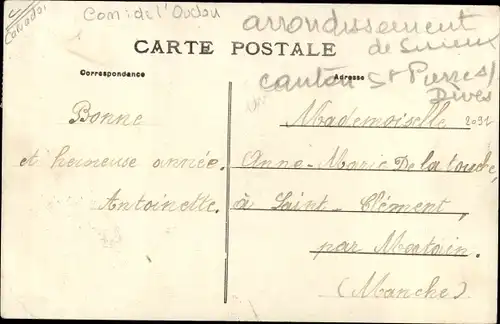 Calvados
Com: de l'Oudon
arrondissement
de Lisieux
canton St Pierre s/
Dives
CARTE POSTALE
Correspondance
Adresse
Bonne
et heureuse année.
Antoinette.
Mademoiselle 2032
Anne-Marie De la touche,
à Saint-Clément,
par Mortain.
(Manche)